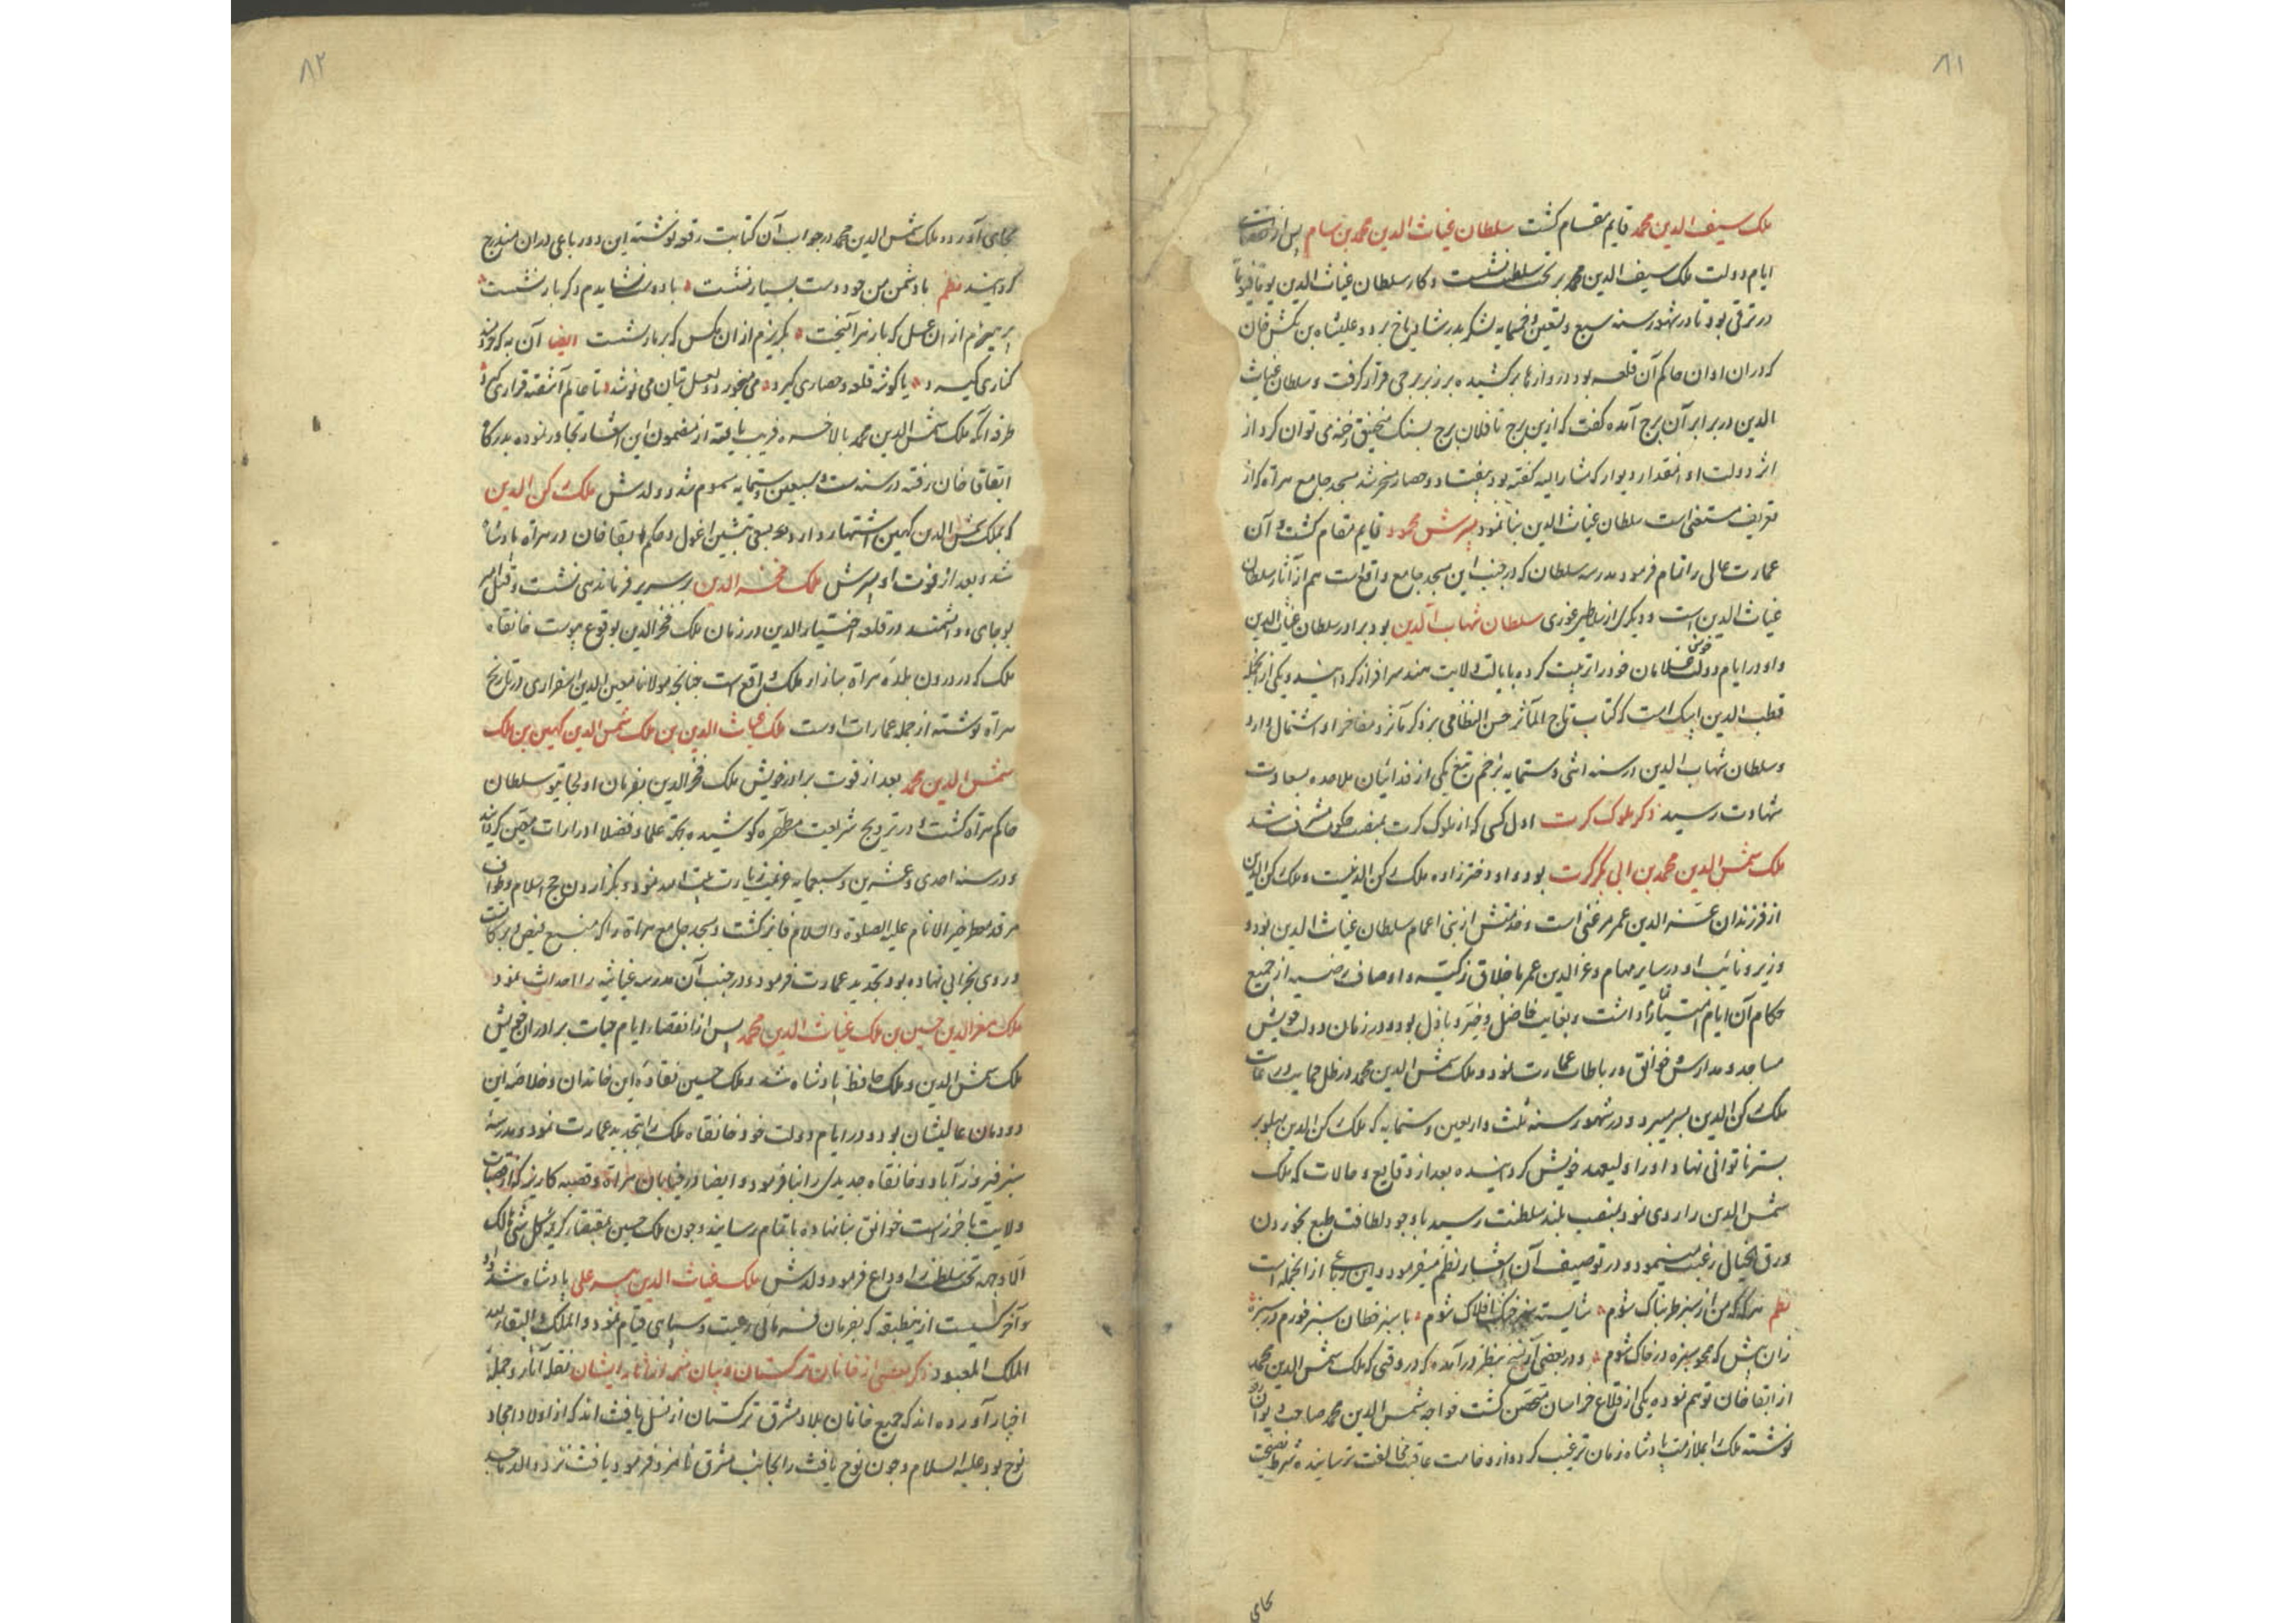 ۸۱
ملک سیف الدین محمد قایم مقام کشت سلطان غیاث الدین محمد بن سام پس از انقضای
ایام دولت ملک سیف الدین محمد بر تخت سلطنت نشست و کار سلطان غیاث الدین یوما فیوما
در ترقی بود تا در شهور سنه سبع و تسعین و خمسمایه لشکر بدر شادیاخ برد و علیشاه بن تکش خان
که در ان اوان حاکم آن قلعه بود دروازها بر کشیده بر زبر برجی قرار کرفت و سلطان غیاث
الدین در برابر آن برج آمده کفت که ازین برج تا فلان برج بسنک منجنیق رخنه می توان کرد از
اثر دولت او انمقدار دیوار که مشار الیه کفته بود بیفتاد و حصار مسخر شد مسجد جامع هراة که از
تعریف مستغنی است سلطان غیاث الدین بنا نمود پسرش محمود قایم مقام کشت و آن
عمارت عالی را تمام فرمود مدرسه سلطان که در جنب این مسجد جامع واقع است هم از آثار سلطان
غیاث الدین است و دیکری از سلاطین غوری سلطان شهاب الدین بود برادر سلطان غیاث الدین
و او در ایام دولت خویش غلامان خود را تربیت کرده بایالت ولایت هند سرافراز کردانید و یکی از انجمله
قطب الدین ایبک است که کتاب تاج المآثر حسن النظامی بر ذکر مآثر و مفاخر او اشتمال دارد
و سلطان شهاب الدین در سنه اثنی و ستمایه بزخم تیغ یکی از فدائیان ملاحده بسعادت
شهادت رسید ذکر ملوک کرت اول کسی که از ملوک کرت بمنصب حکومت مشرف شد
ملک شمس الدین محمد بن ابی بکر کرت بود و او دخترزاده ملک رکن الدینست و ملک رکن الدین
از فرزندان عز الدین عمر مرغنی است و خدمتش از بنی اعمام سلطان غیاث الدین بود و
وزیر و نائب او در سایر مهام و عز الدین عمر باخلاق زکیه و اوصاف رضیه از جمیع
حکام آن ایام امتیاز داشت و بغایت فاضل و خیر و باذل بود و در زمان دولت خویش
مساجد و مدارس و خوانق و رباطات عمارت نمود و ملک شمس الدین محمد در ظل حمایت و رعایت
ملک رکن الدین بسر میبرد و در شهور سنه ثلث و اربعین و ستمایه که ملک رکن الدین پهلو بر
بستر ناتوانی نهاد او را ولیعهد خویش کردانیده بعد از وقایع و حالات که ملک
شمس الدین را روی نمود بمنصب بلند سلطنت رسید با وجود لطافت طبع بخوردن
ورق الخیال رغبت مینمود و در توصیف آن اشعار نظم میفرمود و این رباعی از انجمله است
نظم هرکه که من از سبز طربناک شوم شایسته سبز خنک افلاک شوم با سبز خطان سبز خورم در سبزه
زان پیش که همچو سبزه در خاک شوم و در بعضی از نسخ بنظر در آمده که در وقتی که ملک شمس الدین محمد
از ابقا خان توهم نموده بیکی از قلاع خراسان متحصن کشت خواجه شمس الدین محمد صاحب دیوان
نوشته ملک را بملازمت پادشاه زمان ترغیب کرد و از وخامت عاقبت مخالفت ترسانیده شرط نصیحت
بجای
۸۲
بجای آورد و ملک شمس الدین محمد در جواب آن کتابت رقعه نوشته این دو رباعی در ان مندرج
کردانید نظم با دشمن من چو دوست بسیار نشست با دوست نشایدم دکر بار نشست
پرهیزم از ان عسل که با زهر آمیخت بکریزم از ان مکس که بر مار نشست ایضا آن به که خردمند
کناری کیرد یا کوشه قلعه و حصاری کیرد می میخورد و لعل بتان می نوشد تا عالم آشفته قراری کیرد
طرفه آنکه ملک شمس الدین محمد بالاخره فریب یافته از مضمون این اشعار تجاوز نموده بدرکاه
ابقا خان رفته در سنه ست و سبعین و ستمایه مسموم شد و ولدش ملک رکن الدین
که بملک شمس الدین کهین اشتهار دارد بسعی تبشین اغول و حکم ابقا خان در هراة پادشاه
شد و بعد از فوت او پسرش ملک فخر الدین بر سریر فرماندهی نشست و قتل امیر
بوجای و دانشمند در قلعه اختیار الدین در زمان ملک فخر الدین بوقوع پیوست خانقاه
ملک که در درون بلده هراة سازار ملک واقع است چنانچه مولانا معین الدین اسفزاری در تاریخ
هراة نوشته از جمله عمارات اوست ملک غیاث الدین بن ملک شمس الدین کهین بن ملک
شمس الدین محمد بعد از فوت برادر خویش ملک فخر الدین بفرمان اولجایتو سلطان
حاکم هراة کشت و در ترویج شریعت مطهره کوشیده بجهة علما و فضلا ادرارات معین کردانید
و در سنه احدی و عشرین و سبعمایه عزیمت زیارت بیت الله نمود و بکزاردن حج اسلام و طواف
مرقد مطهر خیر الانام علیه الصلوة و السلام فایز کشت و مسجد جامع هراة را که منبع فیض و برکاتست
و روی بخرابی نهاده بود تجدید عمارت فرمود و در جنب آن مدرسه غیاثیه را احداث نمود
ملک معز الدین حسین بن ملک غیاث الدین محمد پس از انقضاء ایام حیات برادران خویش
ملک شمس الدین و ملک حافظ پادشاه شد و ملک حسین نقاوه این خاندان و خلاصه این
دودمان عالیشان بود و در ایام دولت خود خانقاه ملک را تجدید عمارت نمود و مدرسه
سبز فیروزآباد و خانقاه جدیدی را بنا فرمود و ایضا در خیابان هراة و قصبه کاریز که از قصبات
ولایت باخرز است خوانق بنا نهاده باتمام رسانید و چون ملک حسین بمقتضای کریمه کل شئ هالک
الا وجهه تخت سلطنت را وداع فرمود ولدش ملک غیاث الدین پیر علی پادشاه شد و او
آخر کسیست از ینطبقه که بفرمان فرمائی رعیت و سپاهی قیام نمود و الملک و البقاء لله
الملک المعبود ذکر بعضی از خانان ترکستان و بیان شمه از مآثر ایشان نقله آثار و حمله
اخبار آورده اند که جمیع خانان بلاد مشرق ترکستان از نسل یافث اند که از اولاد امجاد
نوح بود علیه السلام و چون نوح یافث را بجانب مشرق نامزد فرمود یافث نزد والد ماجد